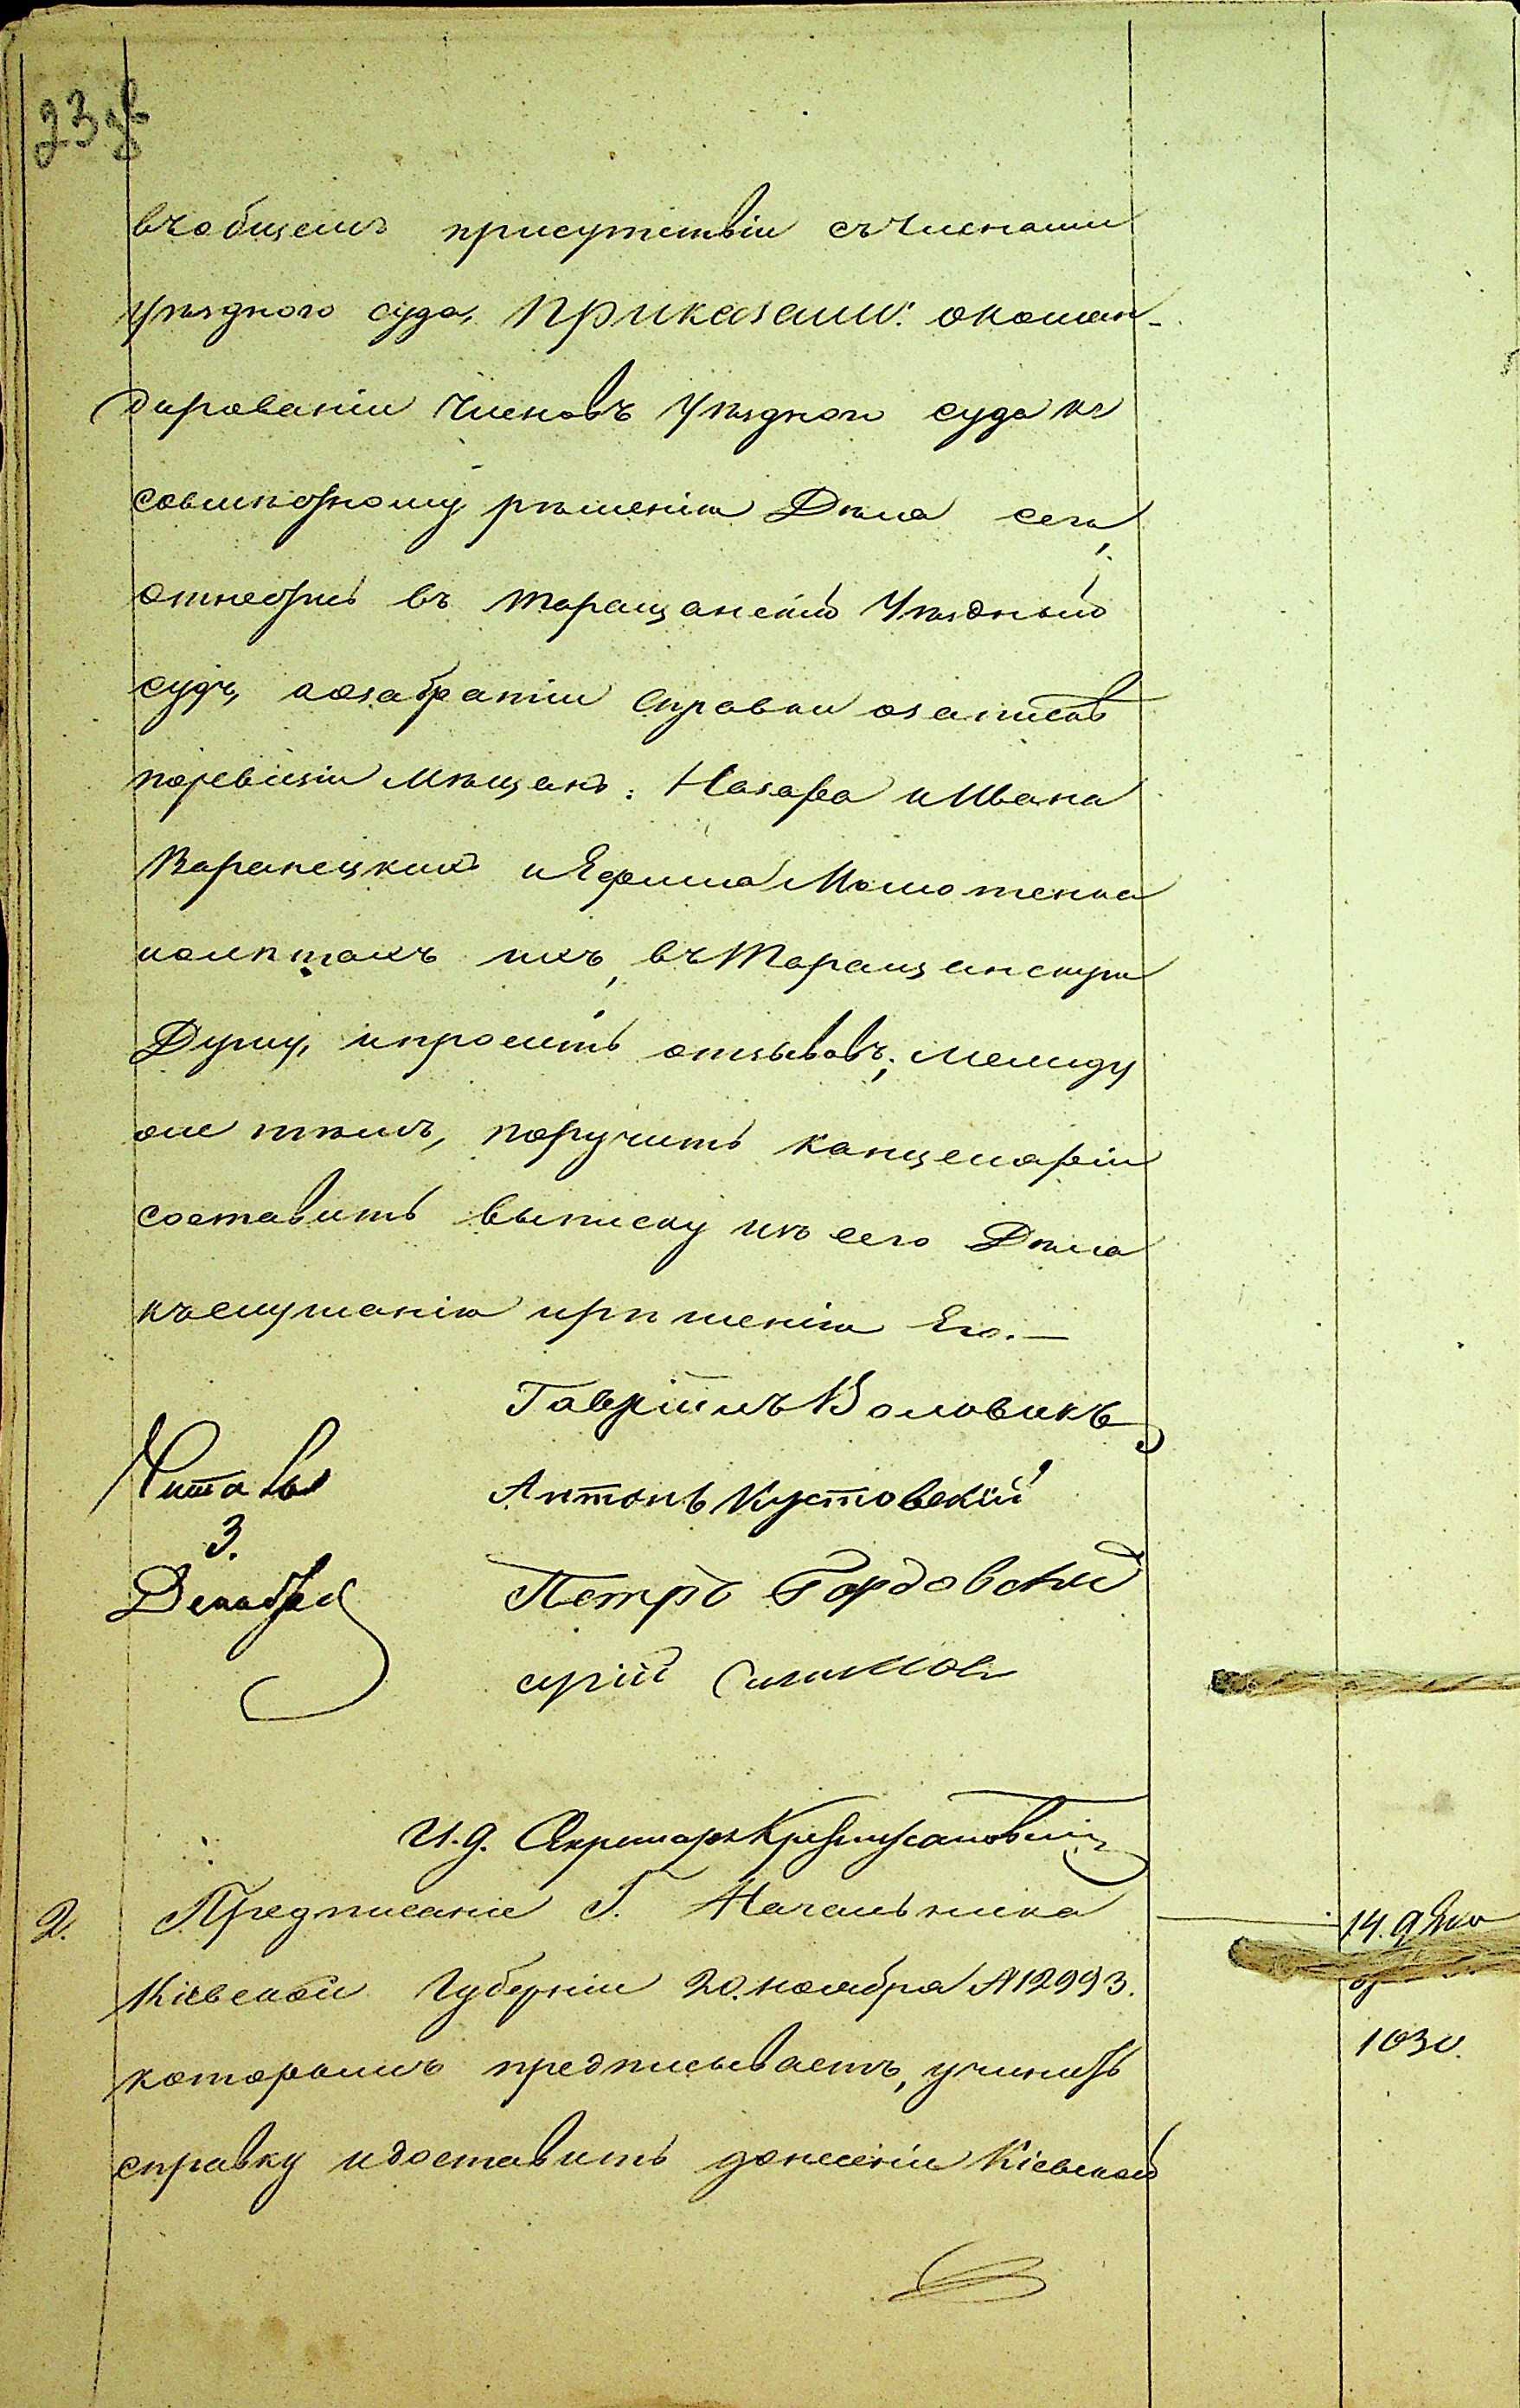 23 зв
въобщемъ присутствіи съчленами
уѣзднаго суда, Приказали: окоман-
дированіи членовъ Уѣзднаго суда къ
совмѣстному рѣшенію Дѣла сего,
отнестись въ Таращанскій Уѣздный
судъ, аозабратіи справки озаписѣ
поревизіи мѣщанъ: Назара иИвана
Варанецкихъ иЕфима Молотенка
иолѣтахъ ихъ, въТаращанскую
Думу, ипросить отзывовъ; между
тѣмъ, поручить канцеляріи
составить выписку изъ сего Дѣла
къслушанію ирѣшенію Его.—
Гавріилъ Воловикъ
Читалъ
Антонъ Кустовскій
3.
Декабря
Петръ Гордовскій
И. д. Секретаря
2. Предписаніе Г. Начальника
Кіевской Губерніи 20. ноября №12993.
которымъ предписываетъ, учинить
справку идоставить донесеніи Кіевской
14.
1030.